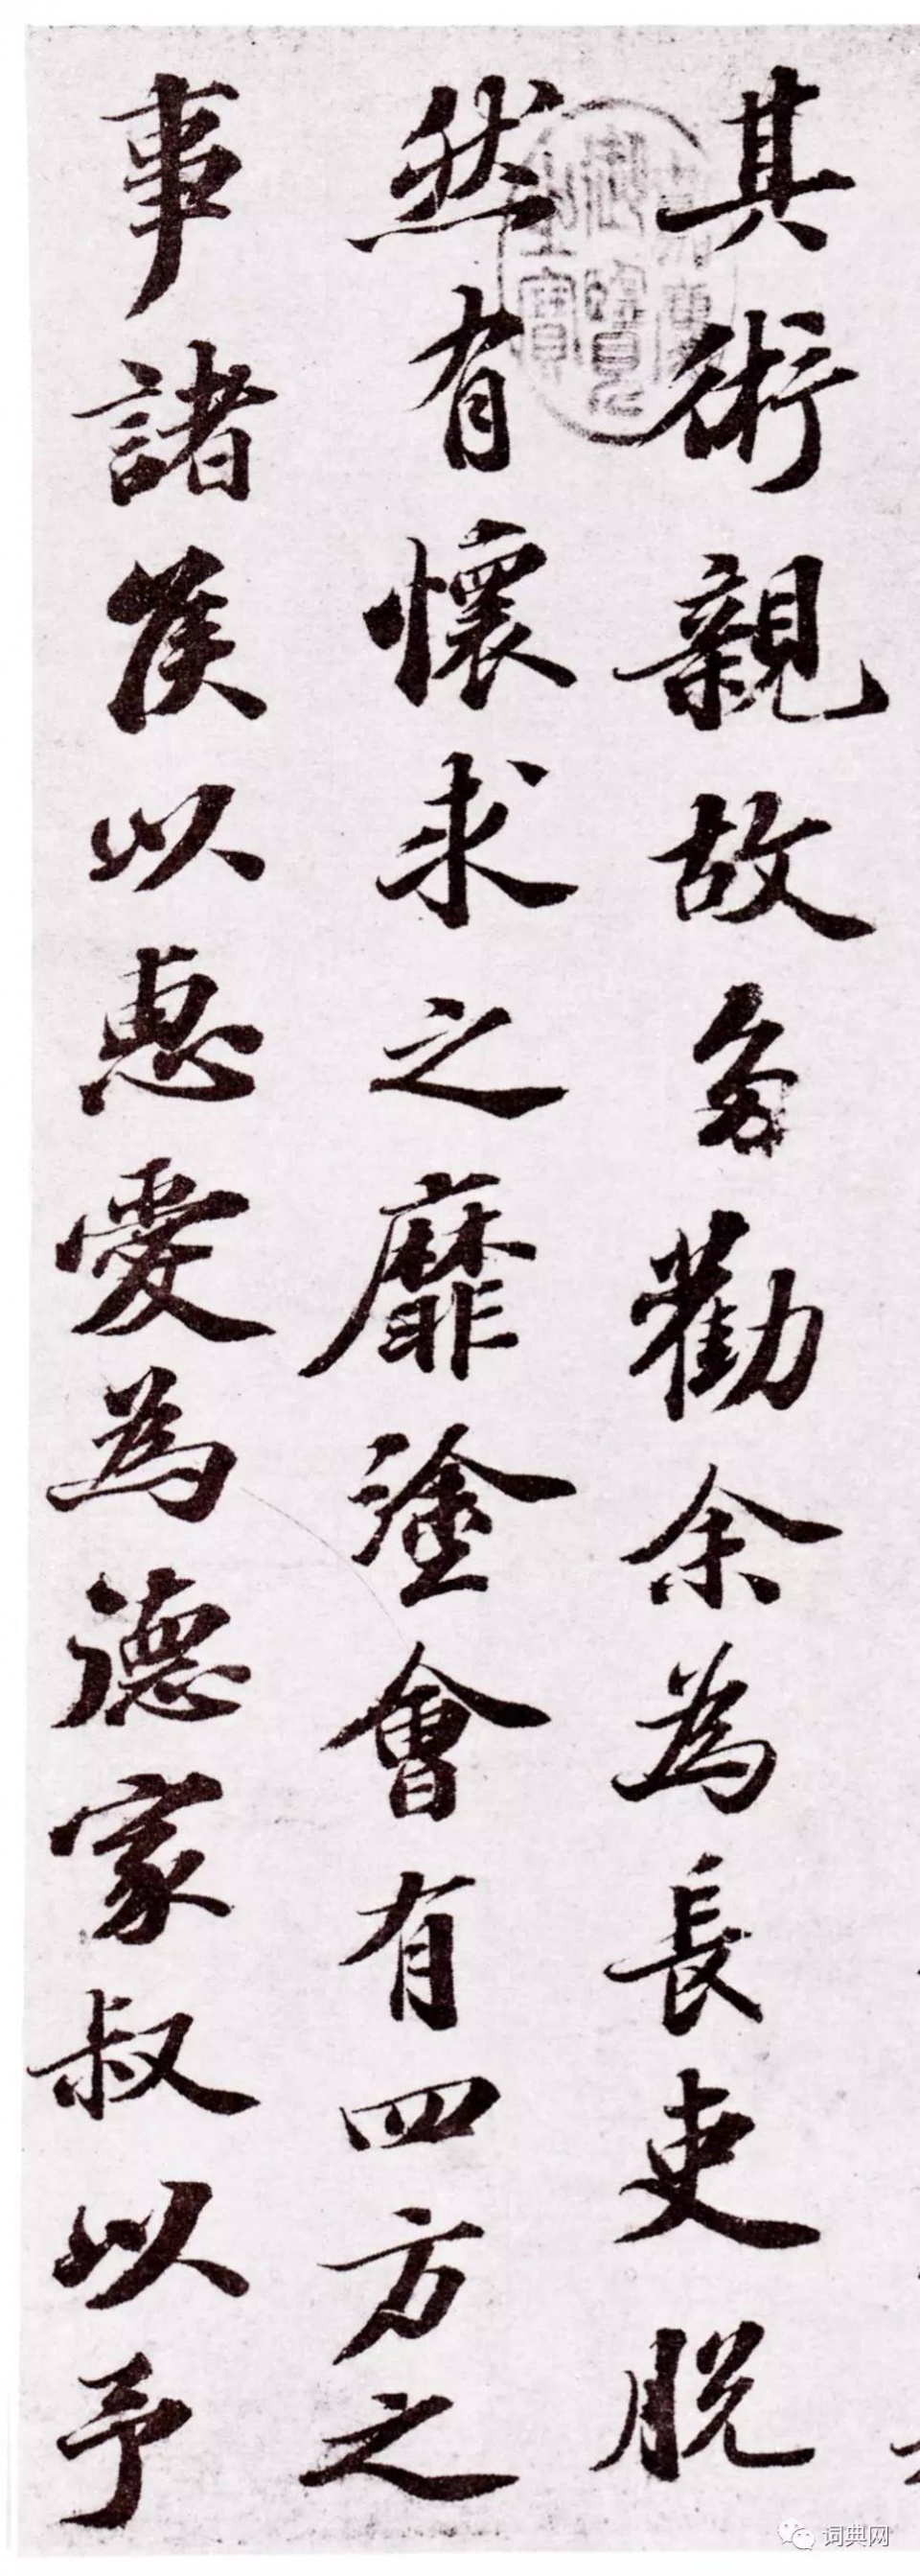 其術親故多勸余為長吏脱
然有懷求之靡塗會有四方之
事諸侯以惠愛為德家叔以予
词典网